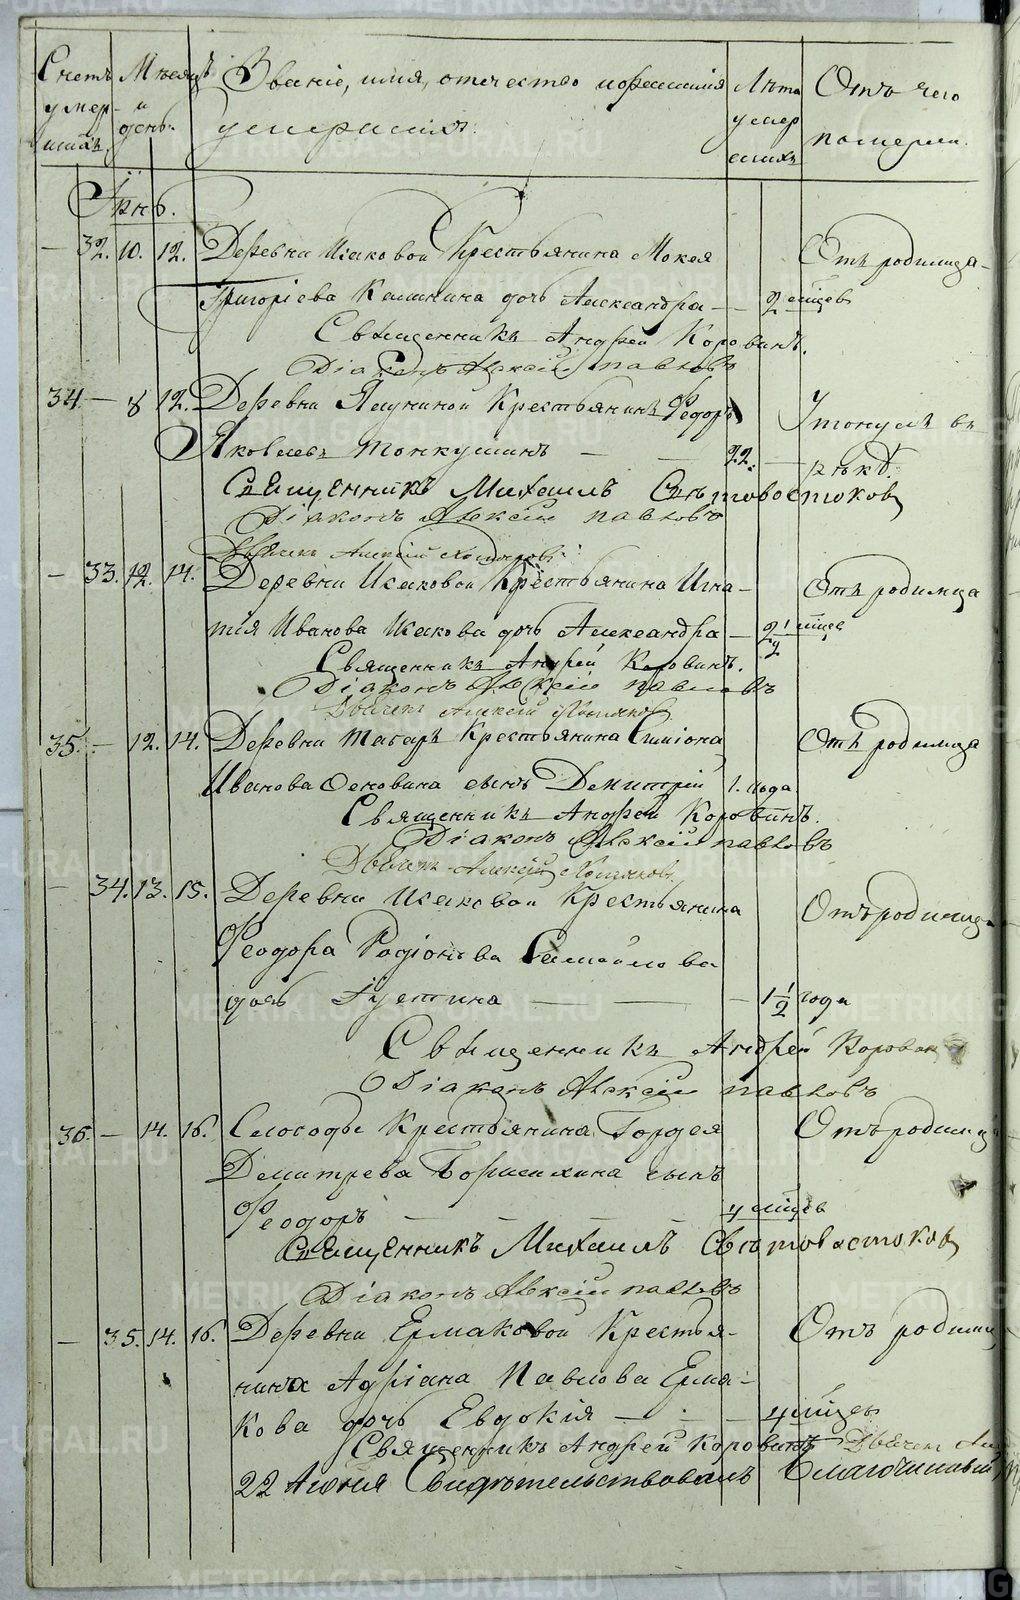 Счетъ умершихъ
Мѣсяцъ и день.
Званіе, имя, отечество и фамилія умершихъ.
Лѣта умершихъ
Отъ чего померли.
Іюнь.
— 32. 10. 12. Деревни Исаковой Крестьянина Мокея Отъ родимца
Григоріева Калинина дочь Александра — 2 мѣсцев
Священникъ Андрей Коровинъ.
Діаконъ Алексій Павловъ
34 — 8 12. Деревни Крестьянинъ Федоръ Утонулъ въ
Яковлевъ — — 22. — рѣкѣ.
Священникъ Михаилъ Свѣтовостоковъ
Діаконъ Алексій Павловъ
Дьячекъ Алексій
— 33. 12. 14. Деревни Исаковой Крестьянина Игна- Отъ родимца
тія Иванова Исакова дочь Александра — 2 1/2 мѣсцев
Священникъ Андрей Коровинъ.
Діаконъ Алексій Павловъ
Дьячекъ Алексій
35. — 12. 14. Деревни Крестьянина Симіона Отъ родимца
Иванова сынъ Димитрій 1. года
Священникъ Андрей Коровинъ.
Діаконъ Алексій Павловъ
Дьячекъ Алексій
— 34. 13. 15. Деревни Исаковой Крестьянина Отъ родимца
Феодора Родіонова Самойлова
дочь Іустина — — — 1 1/2 года
Священникъ Андрей Коровинъ
Діаконъ Алексій Павловъ
36. — 14. 16. Слободы Крестьянина Гордея Отъ родимца
Димитрева сынъ
Феодоръ — — — — 4 мѣсцев
Священникъ Михаилъ Свѣтовостоковъ
Діаконъ Алексій Павловъ
— 35. 14. 16. Деревни Ермаковой Крестья- Отъ родимц
нина Адріана Павлова Ерма-
кова дочь Евдокія — — 4 мѣсцев
Священникъ Андрей Коровинъ Дьячекъ
22 Іюня Свидѣтельствовалъ Благочинный
METRIKI.GASO-URAL.RU